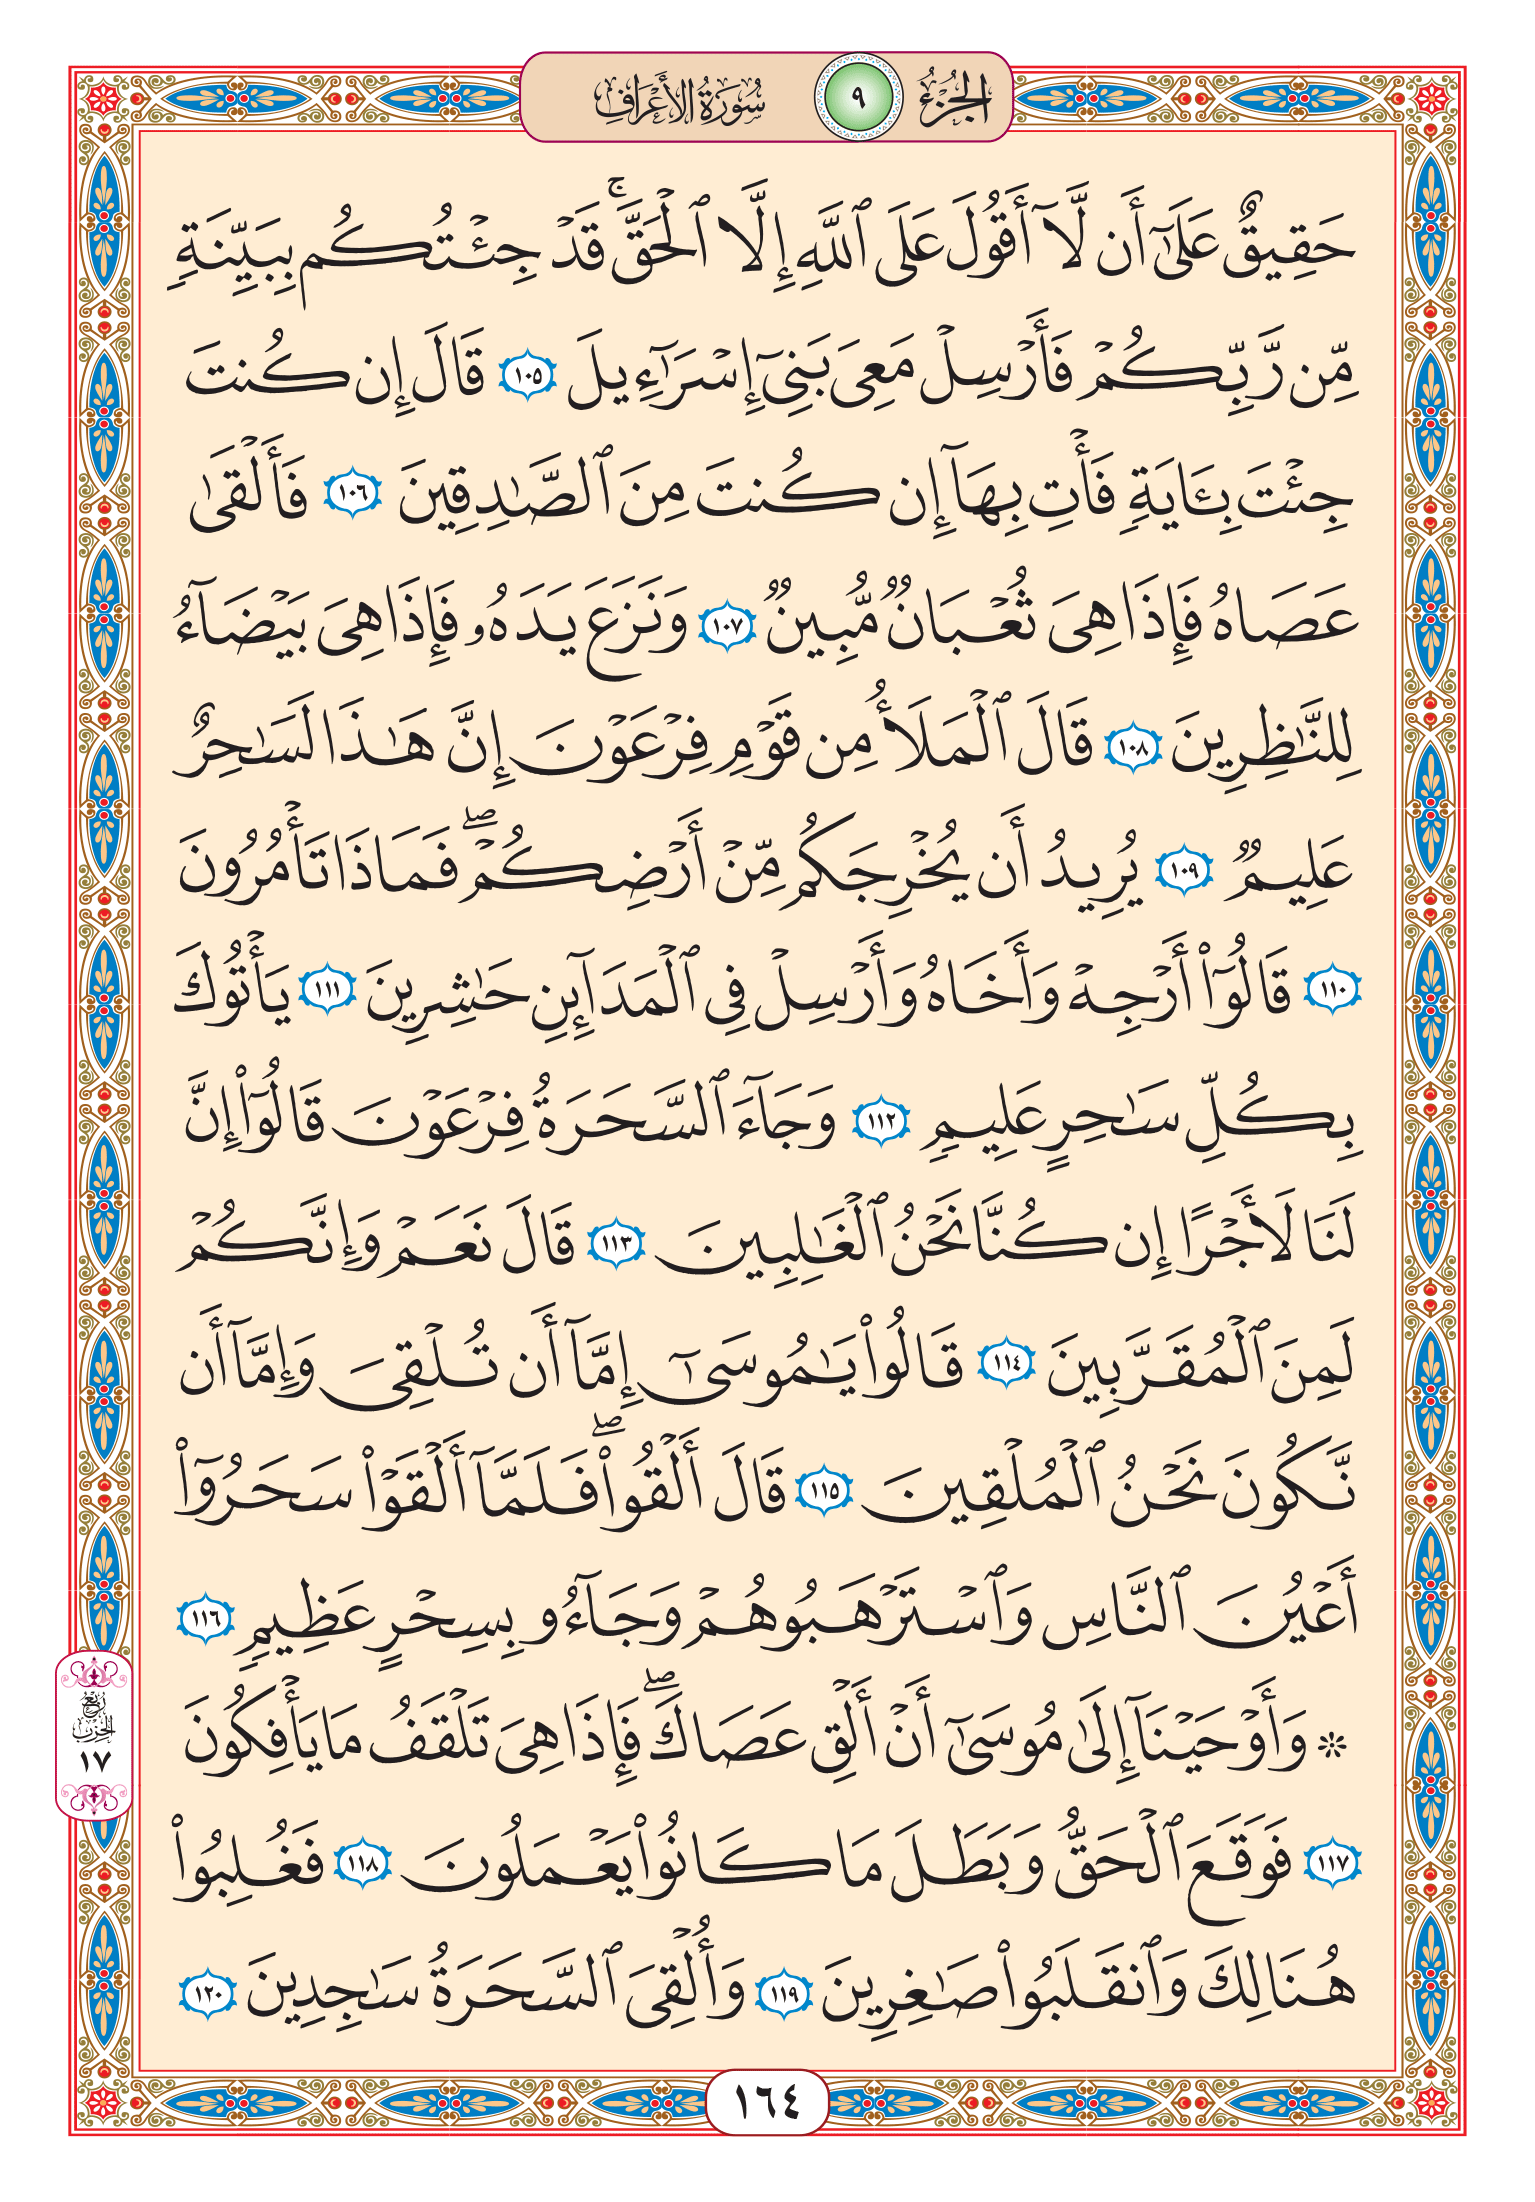 الجزء ٩ سورة الأعراف
حَقِيقٌ عَلَىٰٓ أَن لَّآ أَقُولَ عَلَى ٱللَّهِ إِلَّا ٱلْحَقَّ ۚ قَدْ جِئْتُكُم بِبَيِّنَةٍ
مِّن رَّبِّكُمْ فَأَرْسِلْ مَعِىَ بَنِىٓ إِسْرَٰٓءِيلَ ١٠٥ قَالَ إِن كُنتَ
جِئْتَ بِـَٔايَةٍ فَأْتِ بِهَآ إِن كُنتَ مِنَ ٱلصَّـٰدِقِينَ ١٠٦ فَأَلْقَىٰ
عَصَاهُ فَإِذَا هِىَ ثُعْبَانٌ مُّبِينٌ ١٠٧ وَنَزَعَ يَدَهُۥ فَإِذَا هِىَ بَيْضَآءُ
لِلنَّـٰظِرِينَ ١٠٨ قَالَ ٱلْمَلَأُ مِن قَوْمِ فِرْعَوْنَ إِنَّ هَـٰذَا لَسَـٰحِرٌ
عَلِيمٌ ١٠٩ يُرِيدُ أَن يُخْرِجَكُم مِّنْ أَرْضِكُمْ ۖ فَمَاذَا تَأْمُرُونَ
١١٠ قَالُوٓا۟ أَرْجِهْ وَأَخَاهُ وَأَرْسِلْ فِى ٱلْمَدَآئِنِ حَـٰشِرِينَ ١١١ يَأْتُوكَ
بِكُلِّ سَـٰحِرٍ عَلِيمٍ ١١٢ وَجَآءَ ٱلسَّحَرَةُ فِرْعَوْنَ قَالُوٓا۟ إِنَّ
لَنَا لَأَجْرًا إِن كُنَّا نَحْنُ ٱلْغَـٰلِبِينَ ١١٣ قَالَ نَعَمْ وَإِنَّكُمْ
لَمِنَ ٱلْمُقَرَّبِينَ ١١٤ قَالُوا۟ يَـٰمُوسَىٰٓ إِمَّآ أَن تُلْقِىَ وَإِمَّآ أَن
نَّكُونَ نَحْنُ ٱلْمُلْقِينَ ١١٥ قَالَ أَلْقُوا۟ ۖ فَلَمَّآ أَلْقَوْا۟ سَحَرُوٓا۟
أَعْيُنَ ٱلنَّاسِ وَٱسْتَرْهَبُوهُمْ وَجَآءُو بِسِحْرٍ عَظِيمٍ ١١٦
۞ وَأَوْحَيْنَآ إِلَىٰ مُوسَىٰٓ أَنْ أَلْقِ عَصَاكَ ۖ فَإِذَا هِىَ تَلْقَفُ مَا يَأْفِكُونَ
ربع الحزب ١٧
١١٧ فَوَقَعَ ٱلْحَقُّ وَبَطَلَ مَا كَانُوا۟ يَعْمَلُونَ ١١٨ فَغُلِبُوا۟
هُنَالِكَ وَٱنقَلَبُوا۟ صَـٰغِرِينَ ١١٩ وَأُلْقِىَ ٱلسَّحَرَةُ سَـٰجِدِينَ ١٢٠
١٦٤